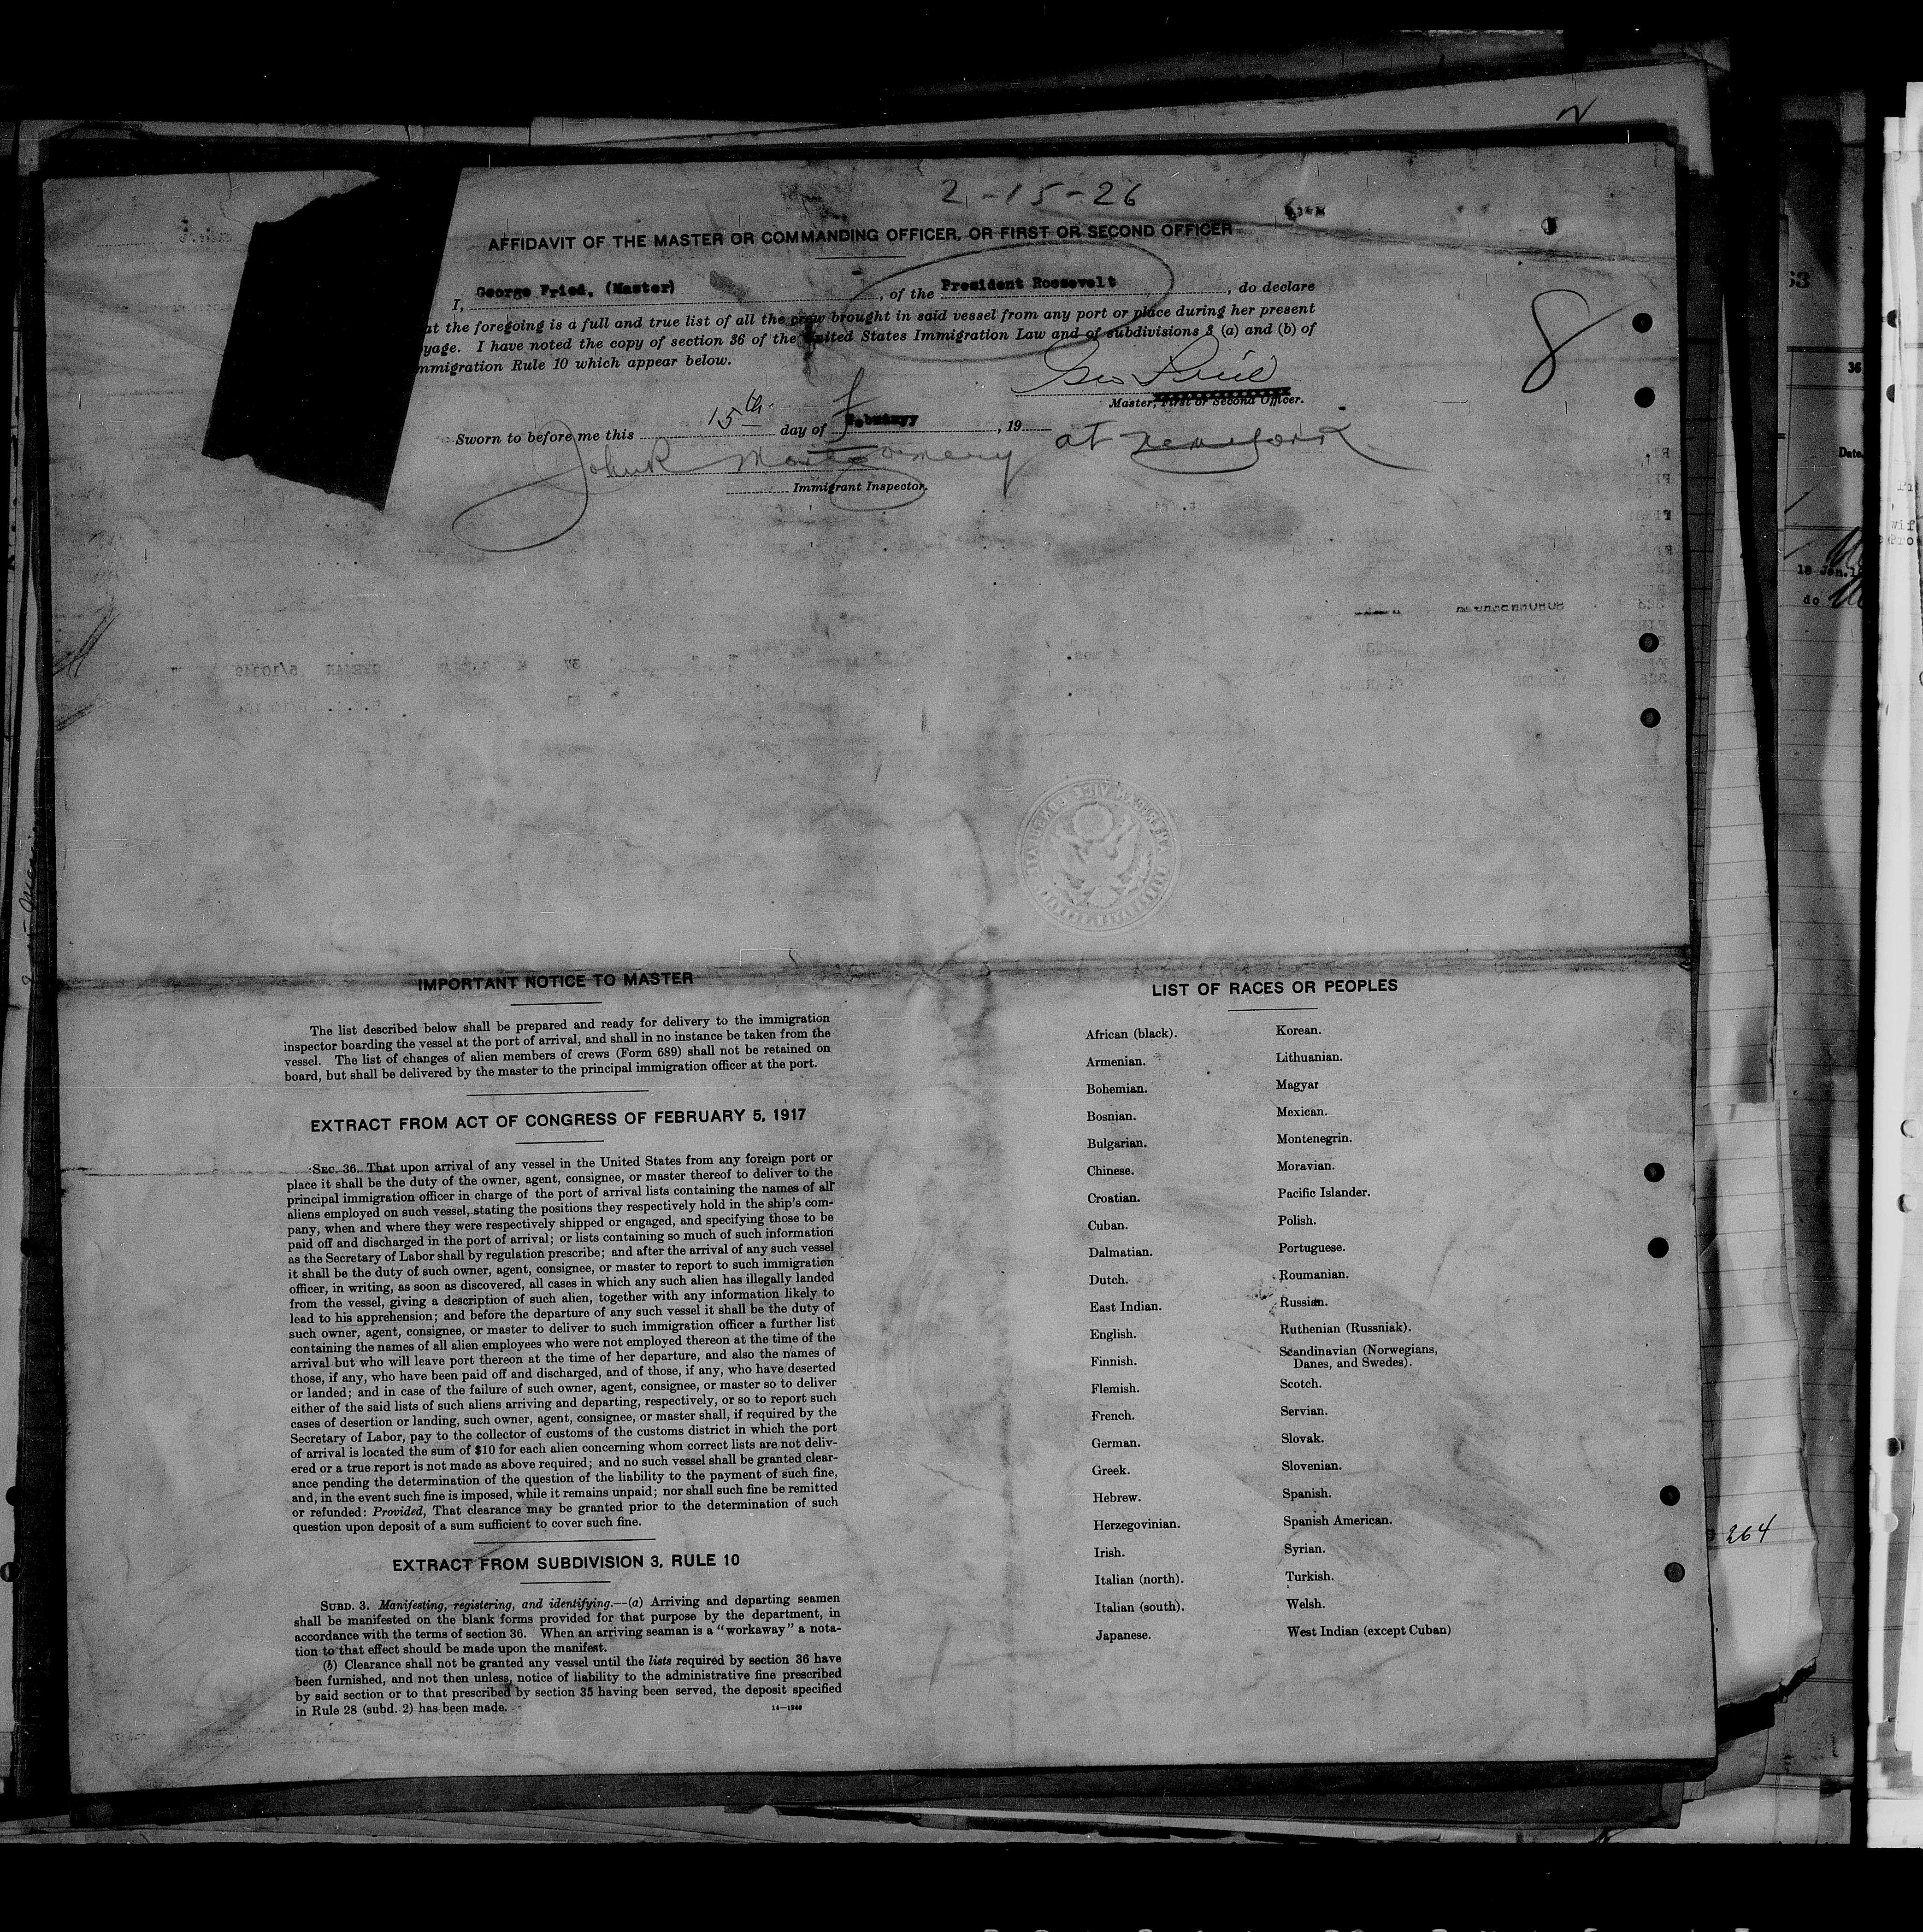 2-15-26
AFFIDAVIT OF THE MASTER OR COMMANDING OFFICER, OR FIRST OR SECOND OFFICER
I, George Fried, (Master), of the President Roosevelt, do declare
at the foregoing is a full and true list of all the crew brought in said vessel from any port or place during her present
yage. I have noted the copy of section 36 of the United States Immigration Law and of subdivisions 3 (a) and (b) of
mmigration Rule 10 which appear below.
8
Geo Fried
Master, First or Second Officer.
Sworn to before me this 15th day of February, 19
at New York
John R Montgomery
Immigrant Inspector.
IMPORTANT NOTICE TO MASTER
The list described below shall be prepared and ready for delivery to the immigration
inspector boarding the vessel at the port of arrival, and shall in no instance be taken from the
vessel. The list of changes of alien members of crews (Form 689) shall not be retained on
board, but shall be delivered by the master to the principal immigration officer at the port.
EXTRACT FROM ACT OF CONGRESS OF FEBRUARY 5, 1917
SEC. 36. That upon arrival of any vessel in the United States from any foreign port or
place it shall be the duty of the owner, agent, consignee, or master thereof to deliver to the
principal immigration officer in charge of the port of arrival lists containing the names of all
aliens employed on such vessel, stating the positions they respectively hold in the ship's com-
pany, when and where they were respectively shipped or engaged, and specifying those to be
paid off and discharged in the port of arrival; or lists containing so much of such information
as the Secretary of Labor shall by regulation prescribe; and after the arrival of any such vessel
it shall be the duty of such owner, agent, consignee, or master to report to such immigration
officer, in writing, as soon as discovered, all cases in which any such alien has illegally landed
from the vessel, giving a description of such alien, together with any information likely to
lead to his apprehension; and before the departure of any such vessel it shall be the duty of
such owner, agent, consignee, or master to deliver to such immigration officer a further list
containing the names of all alien employees who were not employed thereon at the time of the
arrival but who will leave port thereon at the time of her departure, and also the names of
those, if any, who have been paid off and discharged, and of those, if any, who have deserted
or landed; and in case of the failure of such owner, agent, consignee, or master so to deliver
either of the said lists of such aliens arriving and departing, respectively, or so to report such
cases of desertion or landing, such owner, agent, consignee, or master shall, if required by the
Secretary of Labor, pay to the collector of customs of the customs district in which the port
of arrival is located the sum of $10 for each alien concerning whom correct lists are not deliv-
ered or a true report is not made as above required; and no such vessel shall be granted clear-
ance pending the determination of the question of the liability to the payment of such fine,
and, in the event such fine is imposed, while it remains unpaid; nor shall such fine be remitted
or refunded: Provided, That clearance may be granted prior to the determination of such
question upon deposit of a sum sufficient to cover such fine.
EXTRACT FROM SUBDIVISION 3, RULE 10
SUBD. 3. Manifesting, registering, and identifying.—(a) Arriving and departing seamen
shall be manifested on the blank forms provided for that purpose by the department, in
accordance with the terms of section 36. When an arriving seaman is a "workaway" a nota-
tion to that effect should be made upon the manifest.
(b) Clearance shall not be granted any vessel until the lists required by section 36 have
been furnished, and not then unless, notice of liability to the administrative fine prescribed
by said section or to that prescribed by section 35 having been served, the deposit specified
in Rule 28 (subd. 2) has been made.
14—1240
LIST OF RACES OR PEOPLES
African (black).
Armenian.
Bohemian.
Bosnian.
Bulgarian.
Chinese.
Croatian.
Cuban.
Dalmatian.
Dutch.
East Indian.
English.
Finnish.
Flemish.
French.
German.
Greek.
Hebrew.
Herzegovinian.
Irish.
Italian (north).
Italian (south).
Japanese.
Korean.
Lithuanian.
Magyar
Mexican.
Montenegrin.
Moravian.
Pacific Islander.
Polish.
Portuguese.
Roumanian.
Russian.
Ruthenian (Russniak).
Scandinavian (Norwegians,
Danes, and Swedes).
Scotch.
Servian.
Slovak.
Slovenian.
Spanish.
Spanish American.
Syrian.
Turkish.
Welsh.
West Indian (except Cuban)
36
Date
18 Jan.
do
264